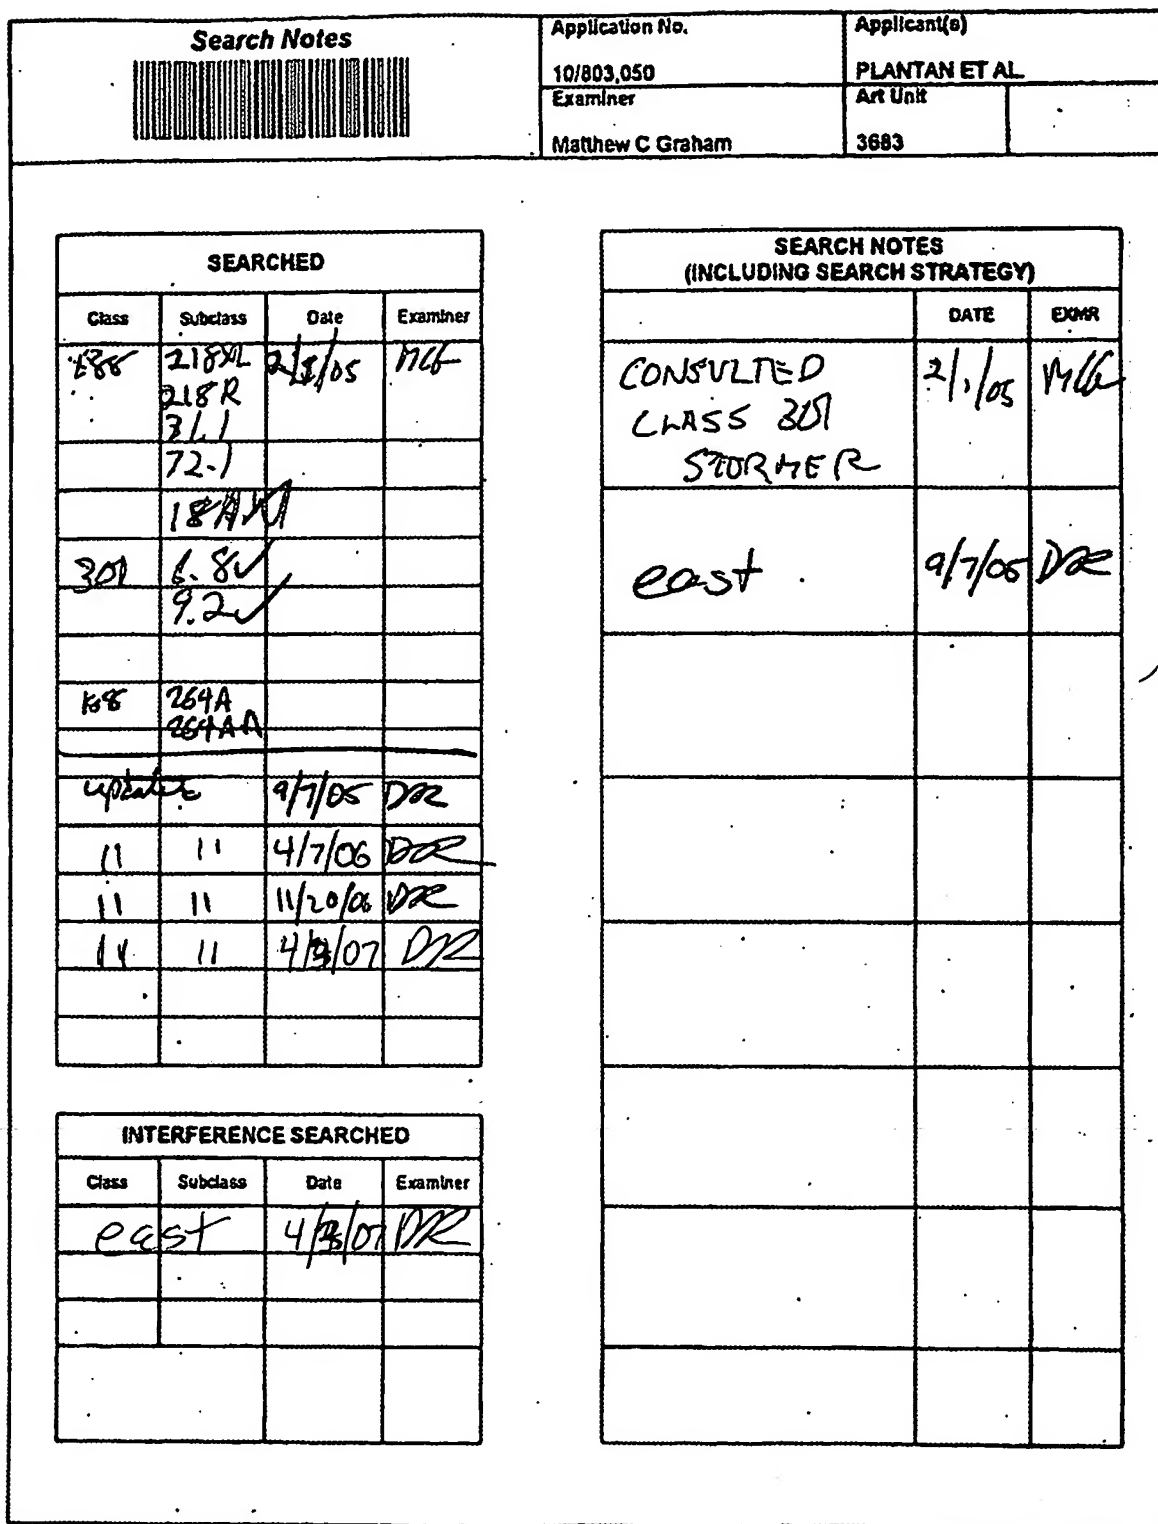 Search Notes
Application No.
10/803,050
Applicant(s)
PLANTAN ET AL.
Examiner
Matthew C Graham
Art Unit
3683
SEARCHED
Class Subclass Date Examiner
188 218XL 2/1/05 MCG
218R
31.1
72.1
18A
301 6.8✓
9.2✓
188 264A
264AA
update 9/7/05 DDR
11 11 4/7/06 DDR
11 11 11/20/06 DDR
11 11 4/ /07 DDR
INTERFERENCE SEARCHED
Class Subclass Date Examiner
east 4/ /07 DDR
SEARCH NOTES
(INCLUDING SEARCH STRATEGY)
DATE EXMR
CONSULTED 2/1/05 MCG
CLASS 301
STORMER
east 9/7/05 DDR